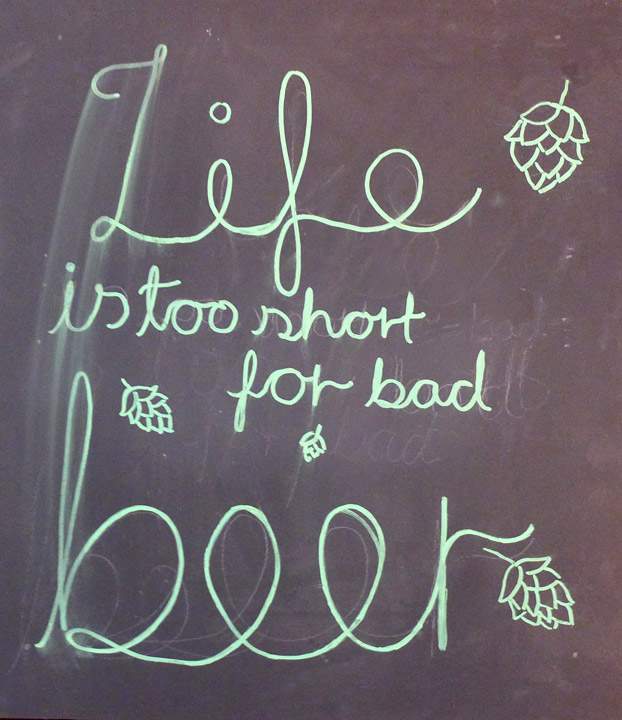 Life
is too short
for bad
beer